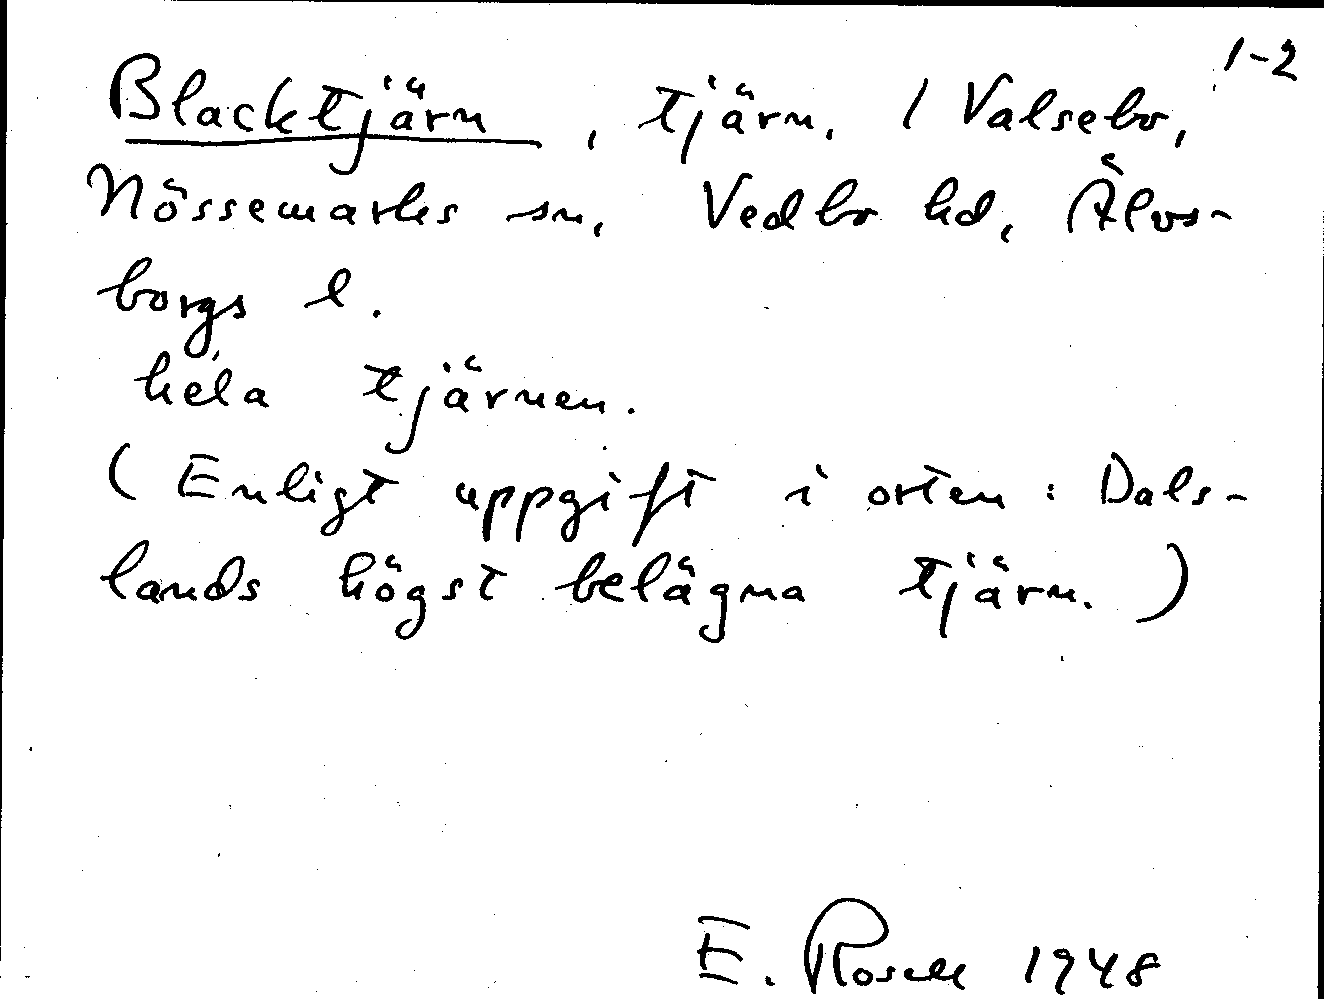 1-2
Blacktjärn, tjärn, i Valsebo,
Nössemarks sn, Vedbo hd, Älvs-
borgs l.
hela tjärnen.
(Enligt uppgift i orten: Dals-
lands högst belägna tjärn.)
E. Rosell 1948